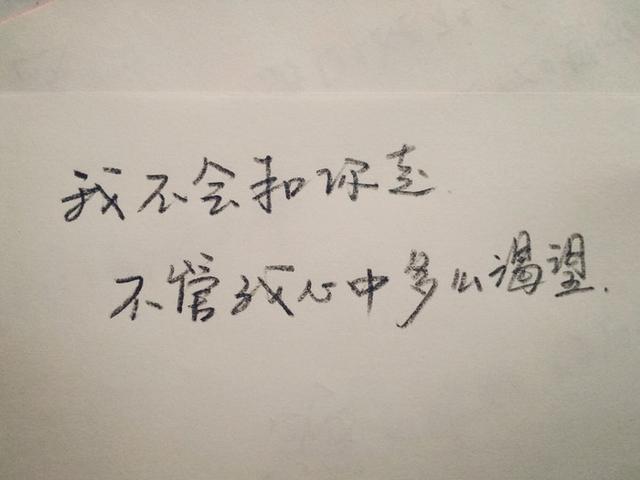 我不会和你走.
不管我心中多么渴望.